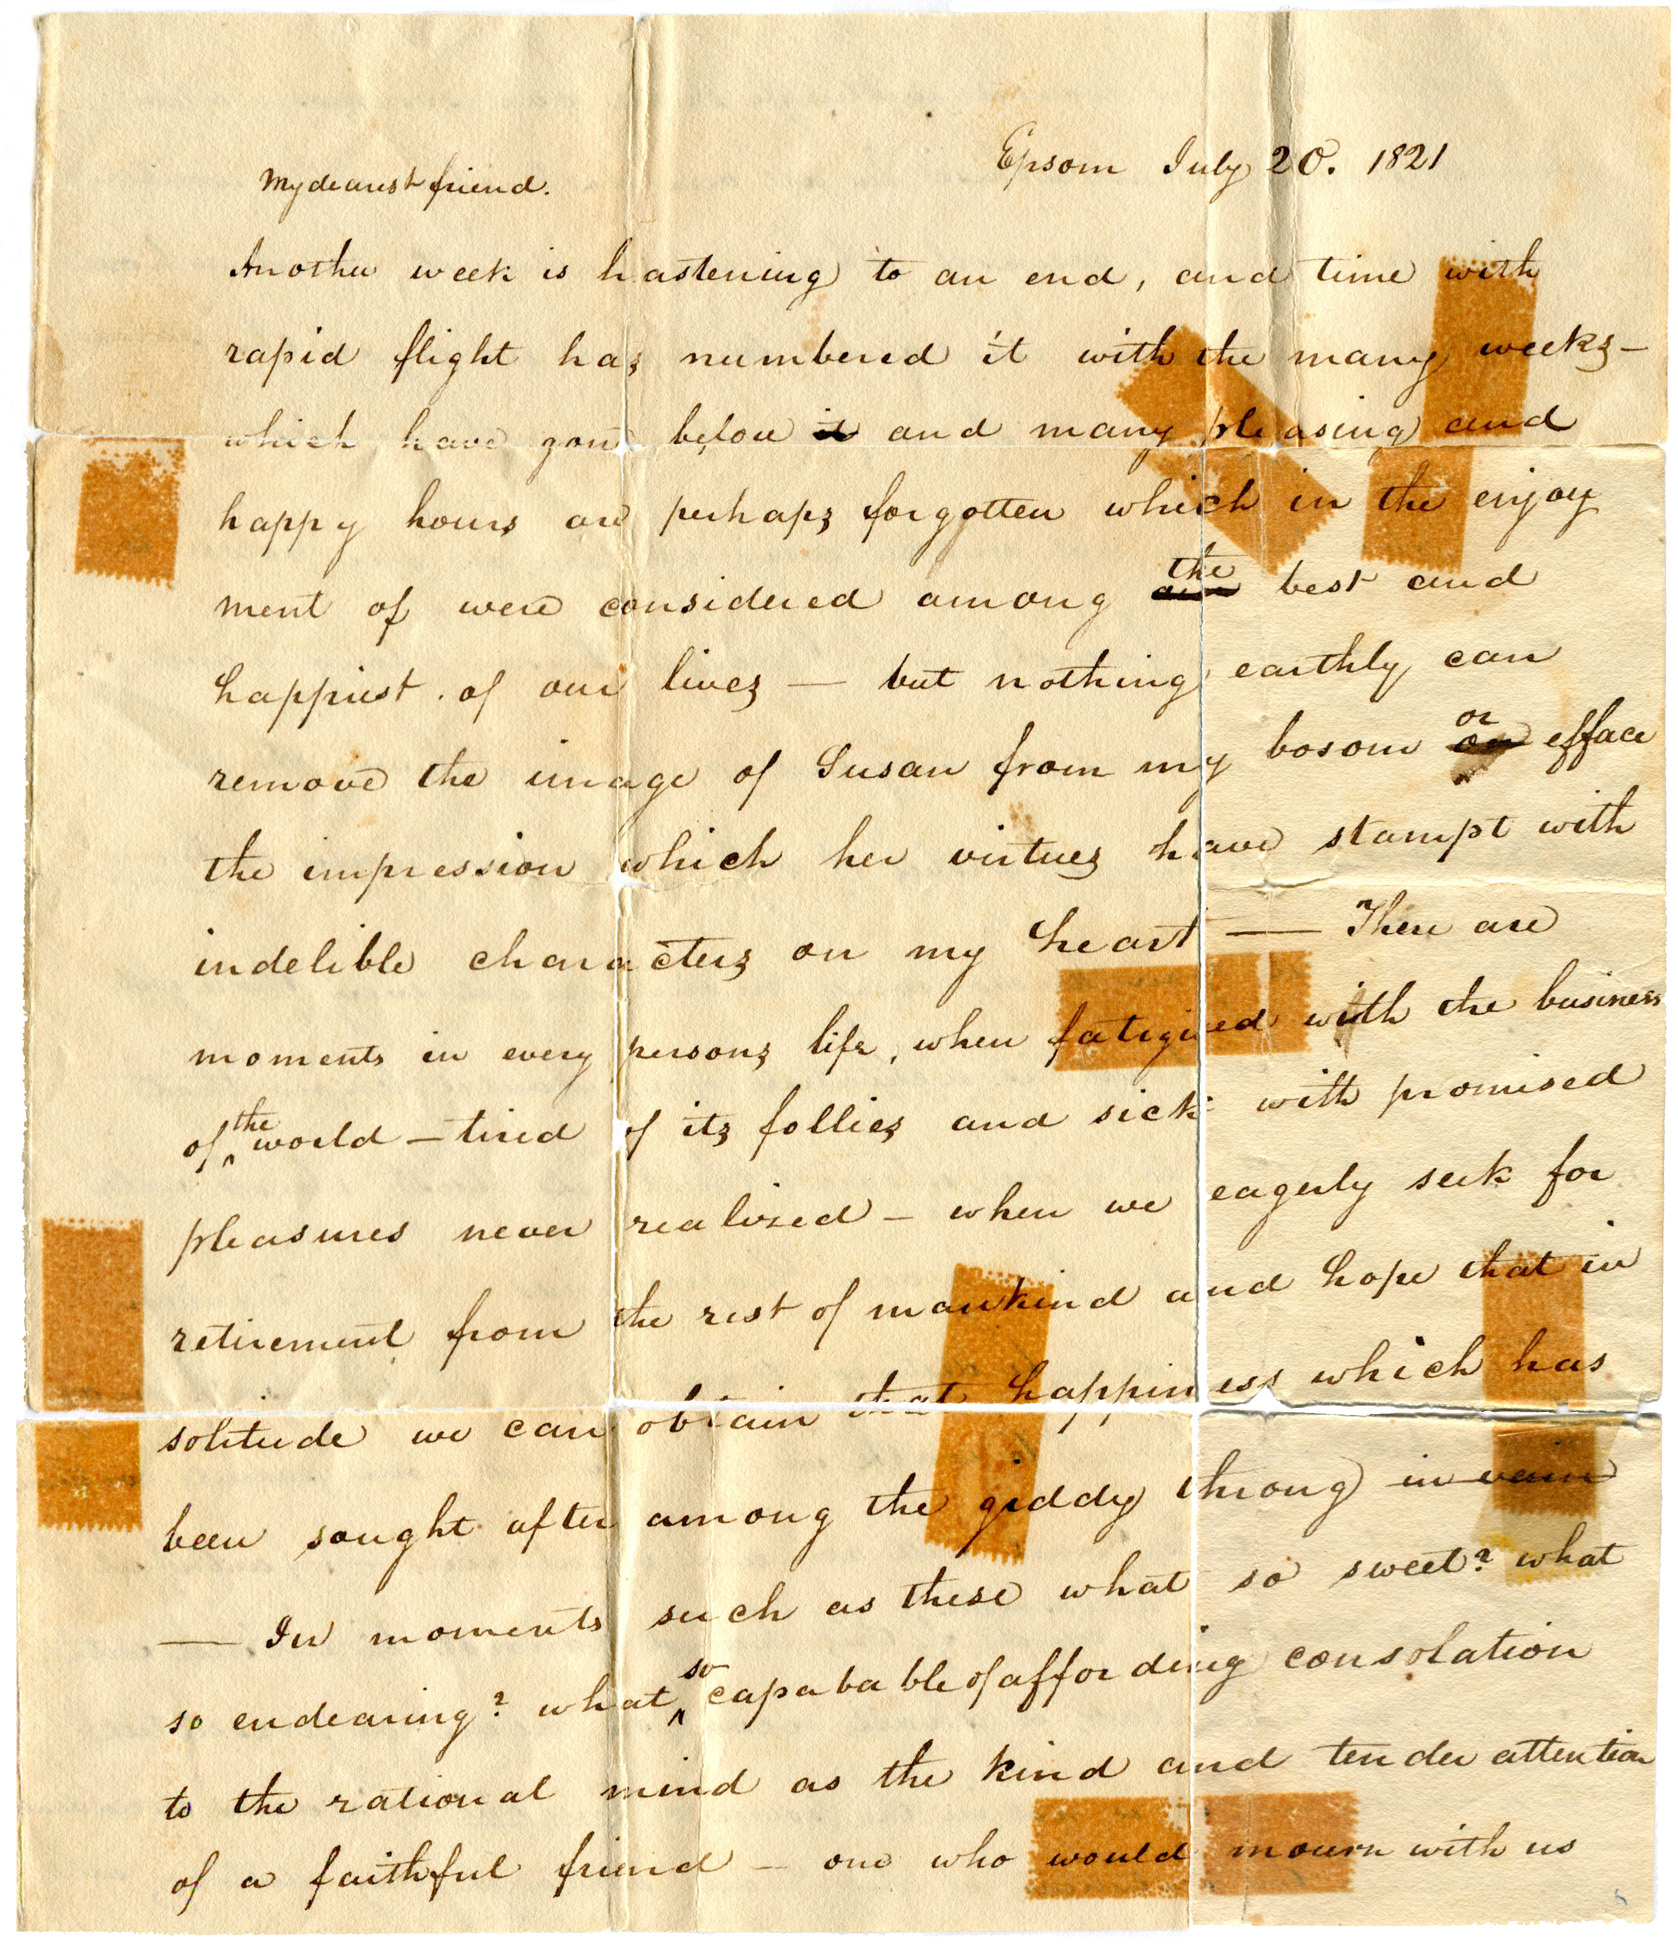 Epsom July 20. 1821
My dearest friend.
Another week is hastening to an end, and time with
rapid flight has numbered it with the many weeks—
which have gone before it and many pleasing and
happy hours are perhaps forgotten which in the enjoy
ment of were considered among the best and
happiest of our lives — but nothing earthly can
remove the image of Susan from my bosom or efface
the impression which her virtues have stampt with
indelible characters on my heart — There are
moments in every persons life, when fatigued with the business
of the world — tired of its follies and sick with promised
pleasures never realized — when we eagerly seek for
retirement from the rest of mankind and hope that in
solitude we can obtain that happiness which has
been sought after among the giddy throng in vain
— In moments such as these what so sweet? what
so endearing? what so capabable of affording consolation
to the rational mind as the kind and tender attention
of a faithful friend — one who would mourn with us